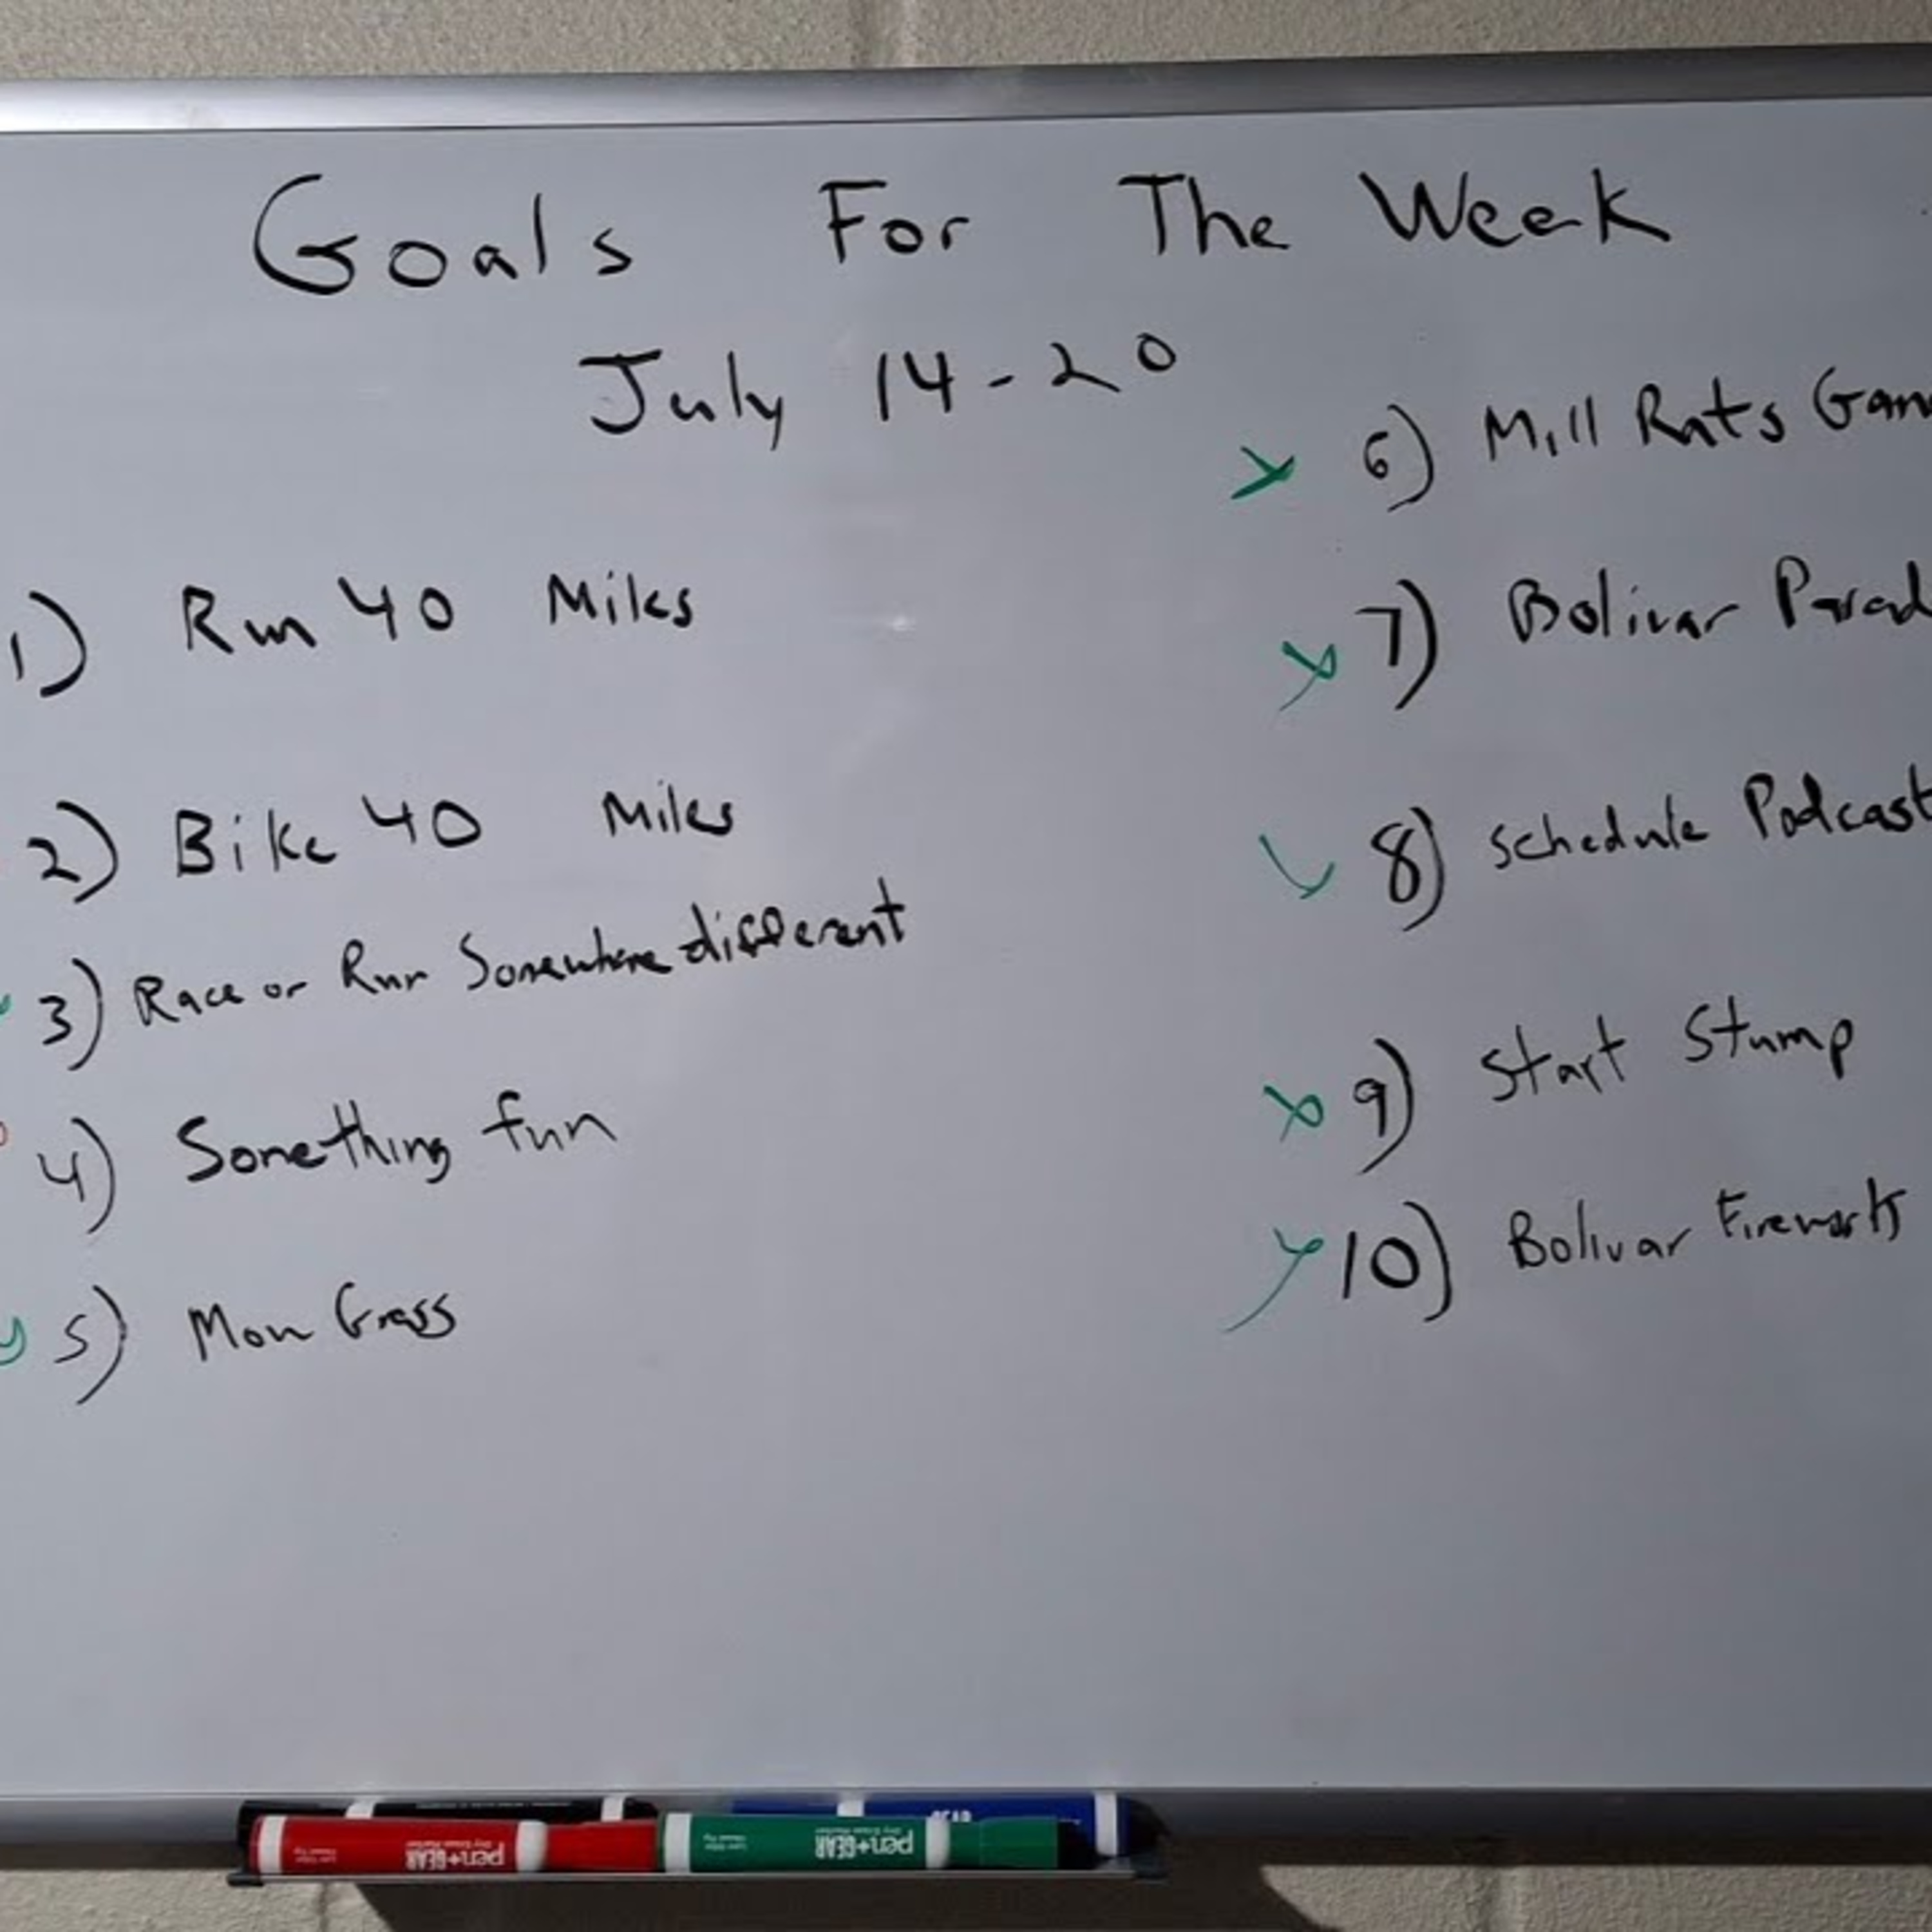 Goals For The Week
July 14-20
1) Run 40 Miles
2) Bike 40 Miles
3) Race or Run Somewhere different
4) Something fun
5) Mow Grass
6) Mill Rats Gam
7) Bolivar Parad
8) Schedule Podcast
9) Start Stump
10) Bolivar Fireworks
pen+GEAR
pen+GEAR